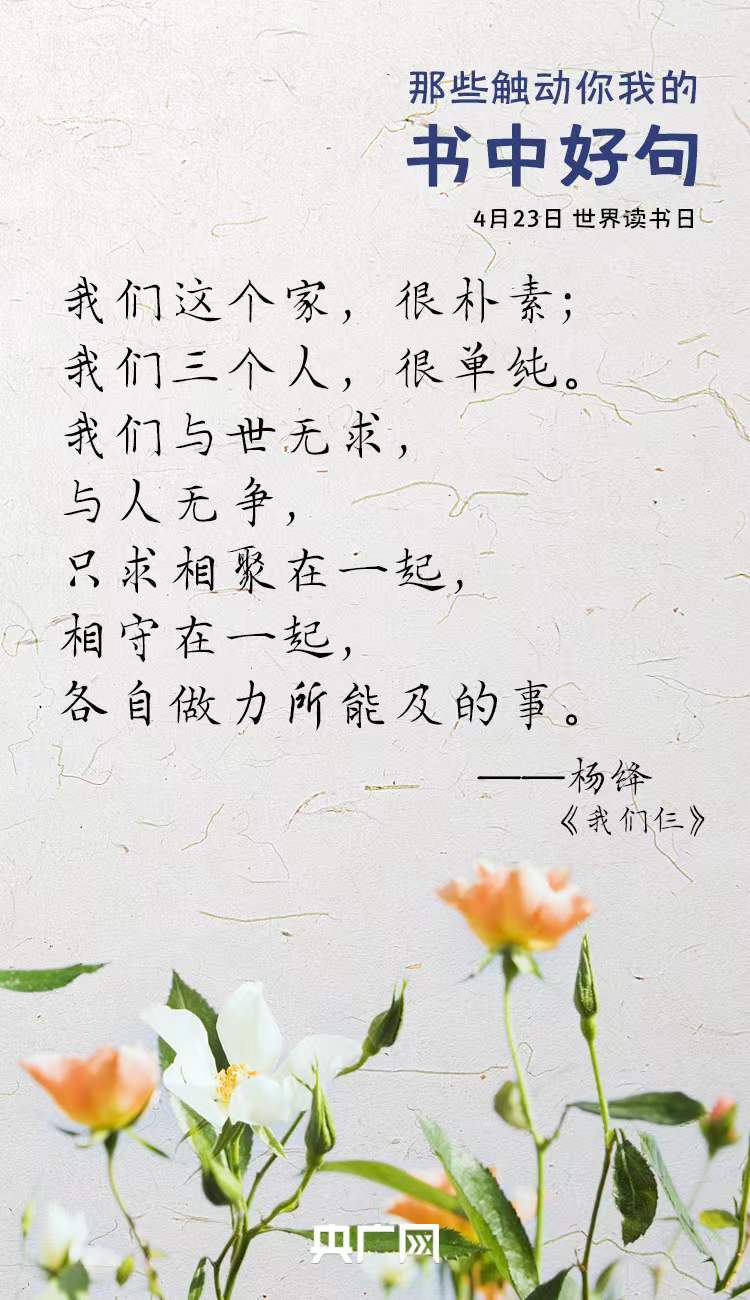 那些触动你我的
书中好句
4月23日 世界读书日
我们这个家，很朴素；
我们三个人，很单纯。
我们与世无求，
与人无争，
只求相聚在一起，
相守在一起，
各自做力所能及的事。
——杨绛
《我们仨》
央广网